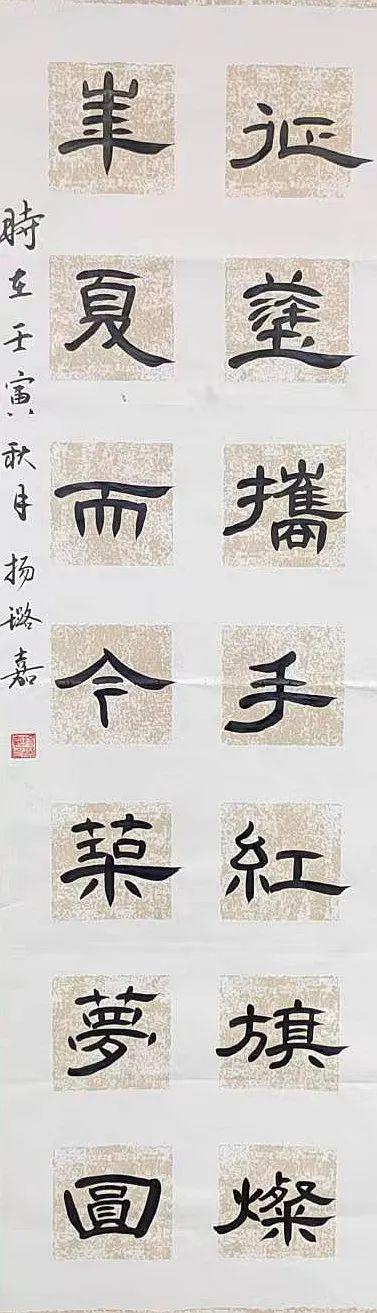 征塗攜手紅旗燦
華夏而今築夢圓
時在壬寅秋月扬璐嘉